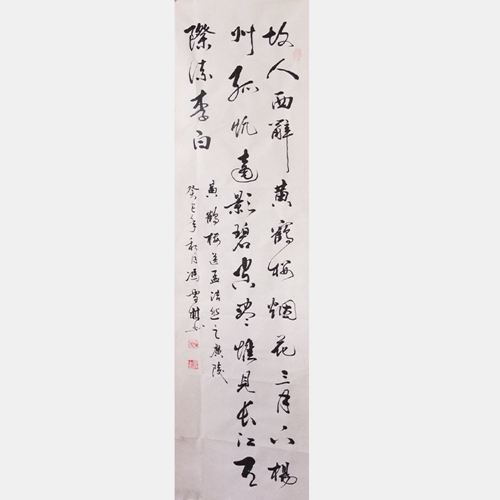 故人西辭黄鶴楼烟花三月下楊
州孤帆遠影碧空尽惟見長江天
際流李白
黄鶴楼送孟浩然之廣陵
癸巳年秋月馮雪